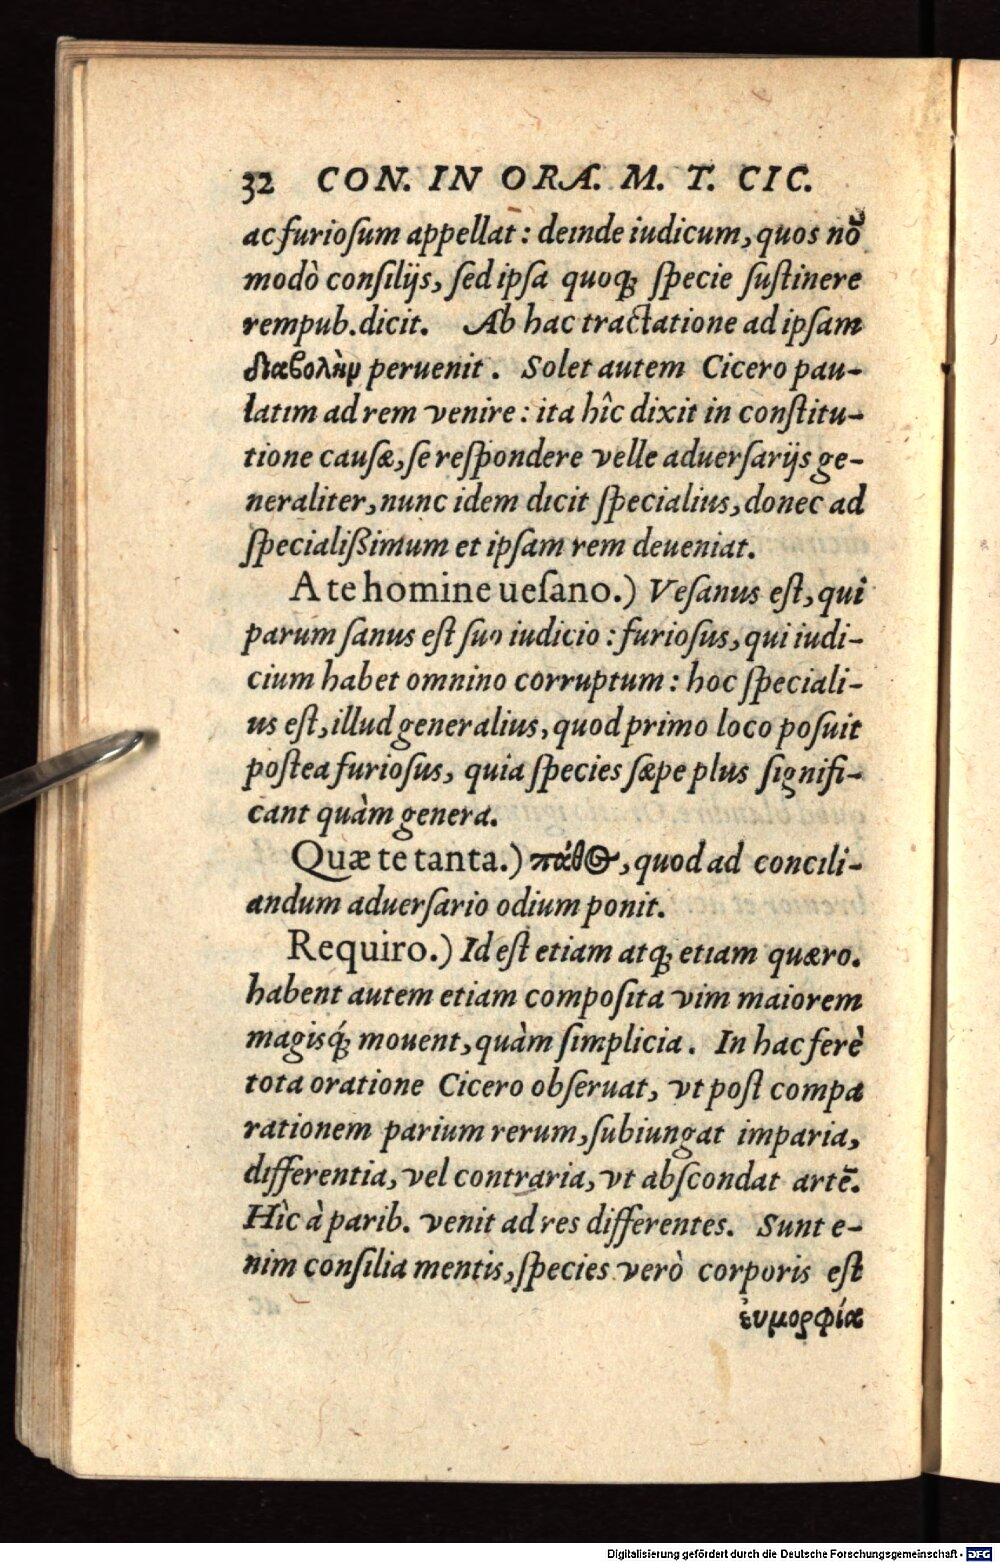 32 CON. IN ORA. M. T. CIC.
ac furioſum appellat: deinde iudicum, quos nō
modò conſilijs, ſed ipſa quoq; ſpecie ſuſtinere
rempub. dicit. Ab hac tractatione ad ipſam
διαβολὴν peruenit. Solet autem Cicero pau-
latim ad rem venire: ita hîc dixit in conſtitu-
tione cauſæ, ſe reſpondere velle aduerſarijs ge-
neraliter, nunc idem dicit ſpecialius, donec ad
ſpecialißimum et ipſam rem deueniat.
A te homine ueſano.) Veſanus eſt, qui
parum ſanus eſt ſuo iudicio: furioſus, qui iudi-
cium habet omnino corruptum: hoc ſpeciali-
us eſt, illud generalius, quod primo loco poſuit
poſtea furioſus, quia ſpecies ſæpe plus ſignifi-
cant quàm genera.
Quæ te tanta.) πάθος, quod ad concili-
andum aduerſario odium ponit.
Requiro.) Id eſt etiam atq; etiam quæro.
habent autem etiam compoſita vim maiorem
magisq́; mouent, quàm ſimplicia. In hac ferè
tota oratione Cicero obſeruat, vt poſt compa
rationem parium rerum, ſubiungat imparia,
differentia, vel contraria, vt abſcondat artē.
Hîc à parib. venit ad res differentes. Sunt e-
nim conſilia mentis, ſpecies verò corporis eſt
ἐυμορφία
Digitalisierung gefördert durch die Deutsche Forschungsgemeinschaft - DFG